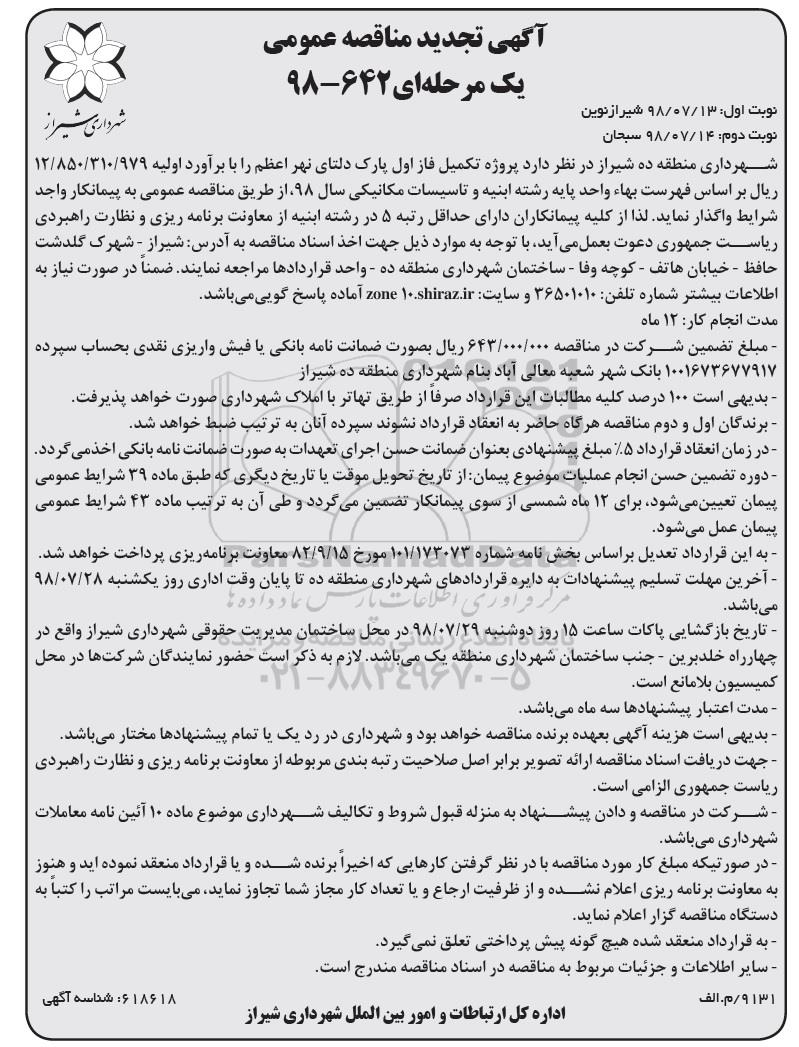 آگهی تجدید مناقصه عمومی
یک مرحله‌ای ۶۴۲-۹۸
شهرداری شیراز
نوبت اول: ۹۸/۰۷/۱۳ شیرازنوین
نوبت دوم: ۹۸/۰۷/۱۴ سبحان
شهرداری منطقه ده شیراز در نظر دارد پروژه تکمیل فاز اول پارک دلتای نهر اعظم را با برآورد اولیه ۱۲/۸۵۰/۳۱۰/۹۷۹
ریال بر اساس فهرست بهاء واحد پایه رشته ابنیه و تاسیسات مکانیکی سال ۹۸، از طریق مناقصه عمومی به پیمانکار واجد
شرایط واگذار نماید. لذا از کلیه پیمانکاران دارای حداقل رتبه ۵ در رشته ابنیه از معاونت برنامه ریزی و نظارت راهبردی
ریاست جمهوری دعوت بعمل‌می‌آید، با توجه به موارد ذیل جهت اخذ اسناد مناقصه به آدرس: شیراز - شهرک گلدشت
حافظ - خیابان هاتف - کوچه وفا - ساختمان شهرداری منطقه ده - واحد قراردادها مراجعه نمایند. ضمناً در صورت نیاز به
اطلاعات بیشتر شماره تلفن: ۳۶۵۰۱۰۱۰ و سایت: zone ۱۰.shiraz.ir آماده پاسخ گویی‌می‌باشد.
مدت انجام کار: ۱۲ ماه
- مبلغ تضمین شرکت در مناقصه ۶۴۳/۰۰۰/۰۰۰ ریال بصورت ضمانت نامه بانکی یا فیش واریزی نقدی بحساب سپرده
۱۰۰۱۶۷۳۶۷۷۹۱۷ بانک شهر شعبه معالی آباد بنام شهرداری منطقه ده شیراز
- بدیهی است ۱۰۰ درصد کلیه مطالبات این قرارداد صرفاً از طریق تهاتر با املاک شهرداری صورت خواهد پذیرفت.
- برندگان اول و دوم مناقصه هرگاه حاضر به انعقاد قرارداد نشوند سپرده آنان به ترتیب ضبط خواهد شد.
- در زمان انعقاد قرارداد ۵٪ مبلغ پیشنهادی بعنوان ضمانت حسن اجرای تعهدات به صورت ضمانت نامه بانکی اخذمی‌گردد.
- دوره تضمین حسن انجام عملیات موضوع پیمان: از تاریخ تحویل موقت یا تاریخ دیگری که طبق ماده ۳۹ شرایط عمومی
پیمان تعیین‌می‌شود، برای ۱۲ ماه شمسی از سوی پیمانکار تضمین می‌گردد و طی آن به ترتیب ماده ۴۳ شرایط عمومی
پیمان عمل می‌شود.
- به این قرارداد تعدیل براساس بخش نامه شماره ۱۰۱/۱۷۳۰۷۳ مورخ ۸۲/۹/۱۵ معاونت برنامه‌ریزی پرداخت خواهد شد.
- آخرین مهلت تسلیم پیشنهادات به دایره قراردادهای شهرداری منطقه ده تا پایان وقت اداری روز یکشنبه ۹۸/۰۷/۲۸
می‌باشد.
- تاریخ بازگشایی پاکات ساعت ۱۵ روز دوشنبه ۹۸/۰۷/۲۹ در محل ساختمان مدیریت حقوقی شهرداری شیراز واقع در
چهارراه خلدبرین - جنب ساختمان شهرداری منطقه یک می‌باشد. لازم به ذکر است حضور نمایندگان شرکت‌ها در محل
کمیسیون بلامانع است.
۰۲۱-۸۸۳۴۹۶۷۰-۵
- مدت اعتبار پیشنهادها سه ماه می‌باشد.
- بدیهی است هزینه آگهی بعهده برنده مناقصه خواهد بود و شهرداری در رد یک یا تمام پیشنهادها مختار می‌باشد.
- جهت دریافت اسناد مناقصه ارائه تصویر برابر اصل صلاحیت رتبه بندی مربوطه از معاونت برنامه ریزی و نظارت راهبردی
ریاست جمهوری الزامی است.
- شرکت در مناقصه و دادن پیشنهاد به منزله قبول شروط و تکالیف شهرداری موضوع ماده ۱۰ آئین نامه معاملات
شهرداری می‌باشد.
- در صورتیکه مبلغ کار مورد مناقصه با در نظر گرفتن کارهایی که اخیراً برنده شده و یا قرارداد منعقد نموده اید و هنوز
به معاونت برنامه ریزی اعلام نشده و از ظرفیت ارجاع و یا تعداد کار مجاز شما تجاوز نماید، می‌بایست مراتب را کتباً به
دستگاه مناقصه گزار اعلام نماید.
- به قرارداد منعقد شده هیچ گونه پیش پرداختی تعلق نمی‌گیرد.
- سایر اطلاعات و جزئیات مربوط به مناقصه در اسناد مناقصه مندرج است.
۹۱۳۱/م.الف
۶۱۸۶۱۸: شناسه آگهی
اداره کل ارتباطات و امور بین الملل شهرداری شیراز